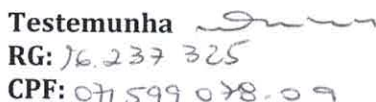 Testemunha
RG: 16.237 325
CPF: 071.599 078.09